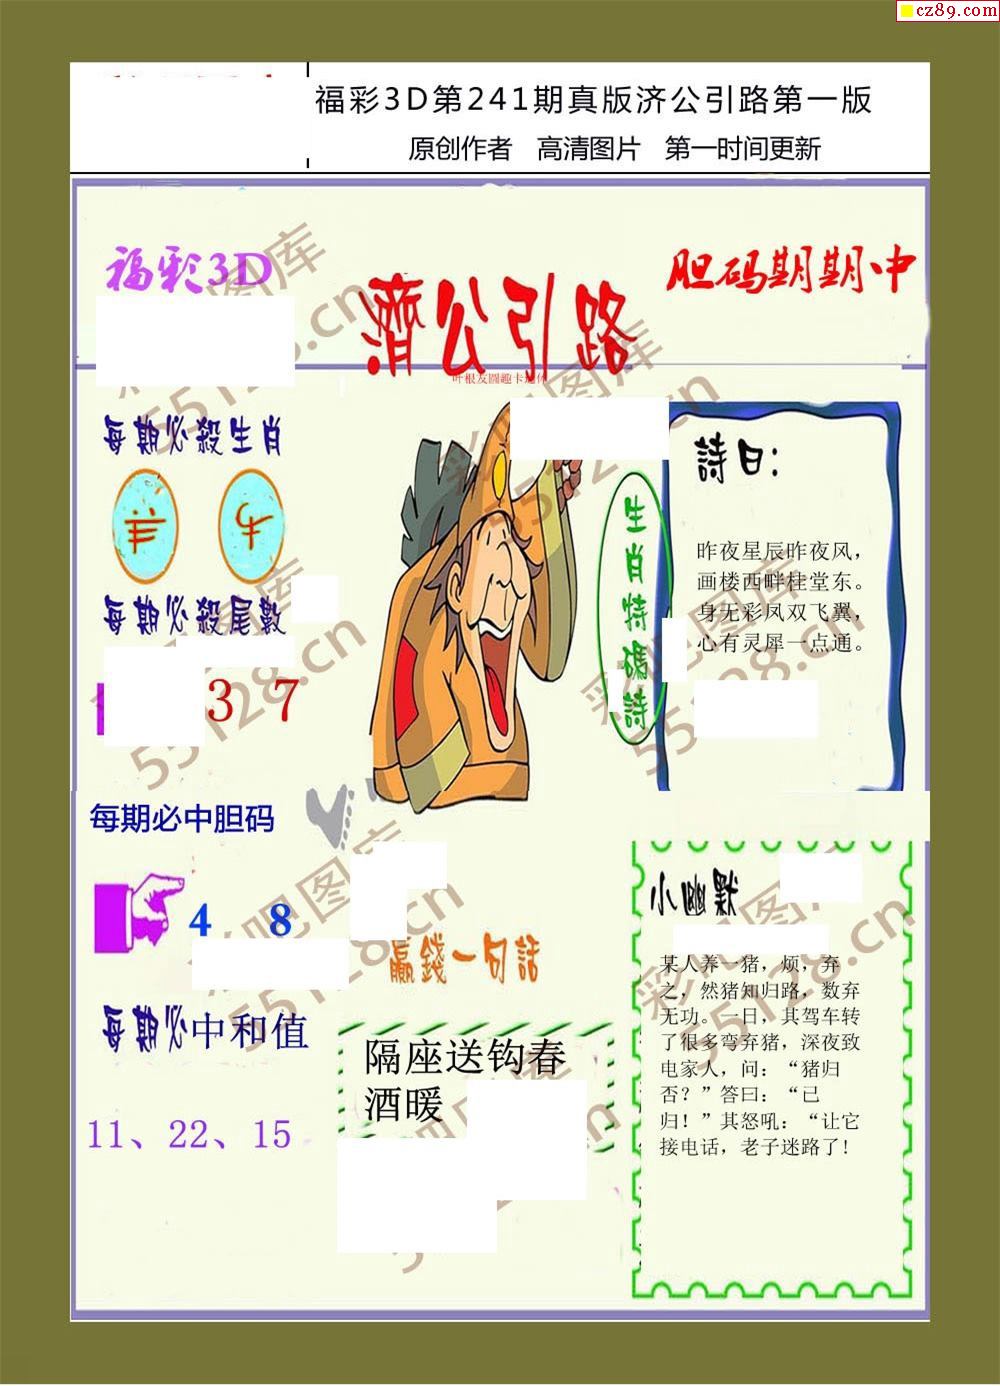 cz89.com
福彩3D第241期真版济公引路第一版
原创作者 高清图片 第一时间更新
福彩3D
濟公引路
胆码期期中
叶根友圆趣卡通体
每期必殺生肖
羊 牛
每期必殺尾數
3 7
生肖特碼詩
詩曰：
昨夜星辰昨夜风，
画楼西畔桂堂东。
身无彩凤双飞翼，
心有灵犀一点通。
每期必中胆码
4 8
每期必中和值
11、22、15
赢錢一句話
隔座送钩春
酒暖
小幽默
某人养一猪，烦，弃
之，然猪知归路，数弃
无功。一日，其驾车转
了很多弯弃猪，深夜致
电家人，问：“猪归
否？”答曰：“已
归！”其怒吼：“让它
接电话，老子迷路了!
彩吧图库
55128.cn